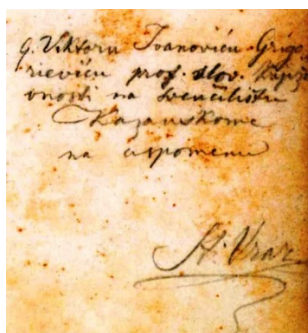 G. Viktoru Ivanoviću Grigo
rieviću prof. slov. knjiž
vnosti na sveučilištu
Kazanskome
na uspomenu
St. Vraz